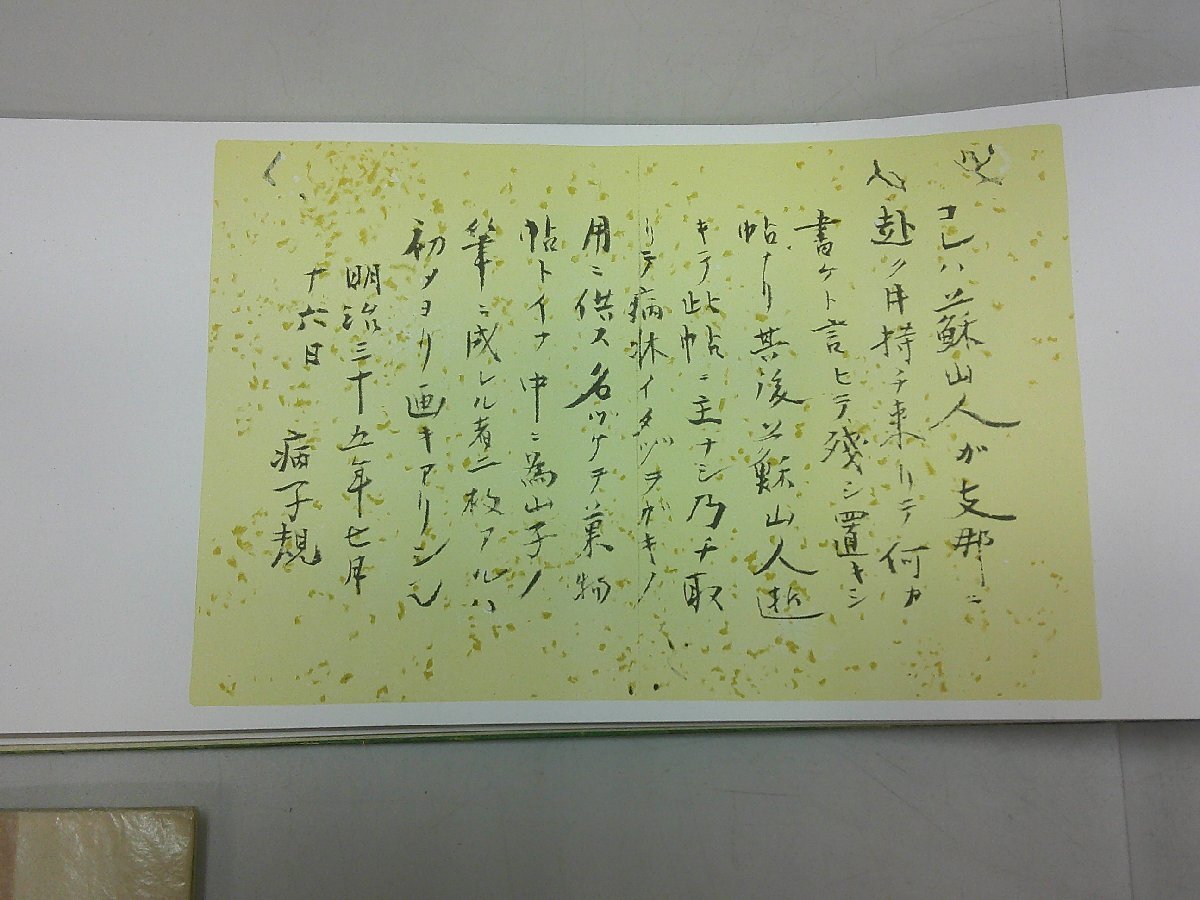 コレハ蘇山人ガ支那ニ
赴ク時持チ来リテ何カ
書ケト言ヒテ残シ置キシ
帖ナリ其後蘇山人逝
キテ此帖ニ主ナシ乃チ取
リテ病牀イタヅラガキノ
用ニ供ス名ヅケテ菓物
帖トイフ中ニ為山子ノ
筆ニ成レル者二枚アルハ
初メヨリ画キアリシ也
明治三十五年七月
十六日　病子規